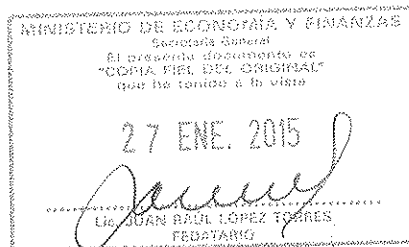 MINISTERIO DE ECONOMÍA Y FINANZAS
Secretaría General
El presente documento es
"COPIA FIEL DEL ORIGINAL"
que he tenido a la vista
27 ENE. 2015
Lic. JUAN RAUL LOPEZ TORRES
FEDATARIO